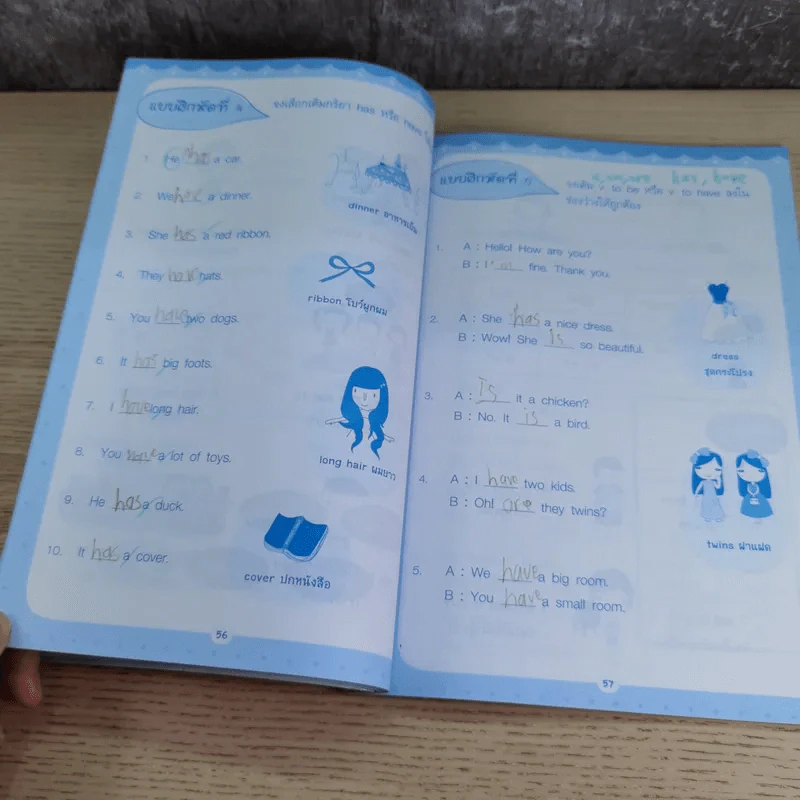 แบบฝึกหัดที่ ๔ จงเลือกเติมกริยา has หรือ have
1. He has a car.
2. We have a dinner.
3. She has a red ribbon.
4. They have hats.
5. You have two dogs.
6. It has big foots.
7. I have long hair.
8. You have a lot of toys.
9. He has a duck.
10. It has a cover.
dinner อาหารเย็น
ribbon โบว์ผูกผม
long hair ผมยาว
cover ปกหนังสือ
56
แบบฝึกหัดที่ ๕ จงเติม v. to be หรือ v. to have ลงใน
ช่องว่างให้ถูกต้อง
is, am, are has, have
1. A : Hello! How are you?
B : I'm fine. Thank you.
2. A : She has a nice dress.
B : Wow! She is so beautiful.
3. A : Is it a chicken?
B : No. It is a bird.
4. A : I have two kids.
B : Oh! are they twins?
5. A : We have a big room.
B : You have a small room.
dress
ชุดกระโปรง
twins ฝาแฝด
57